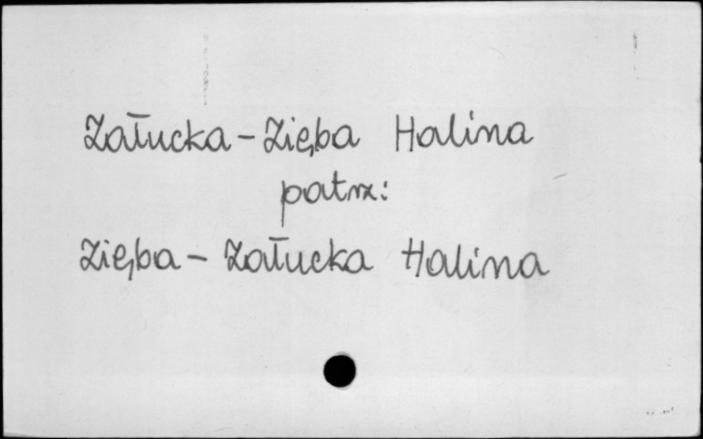 Załucka-Zięba Halina
patrz:
Zięba-Załucka Halina